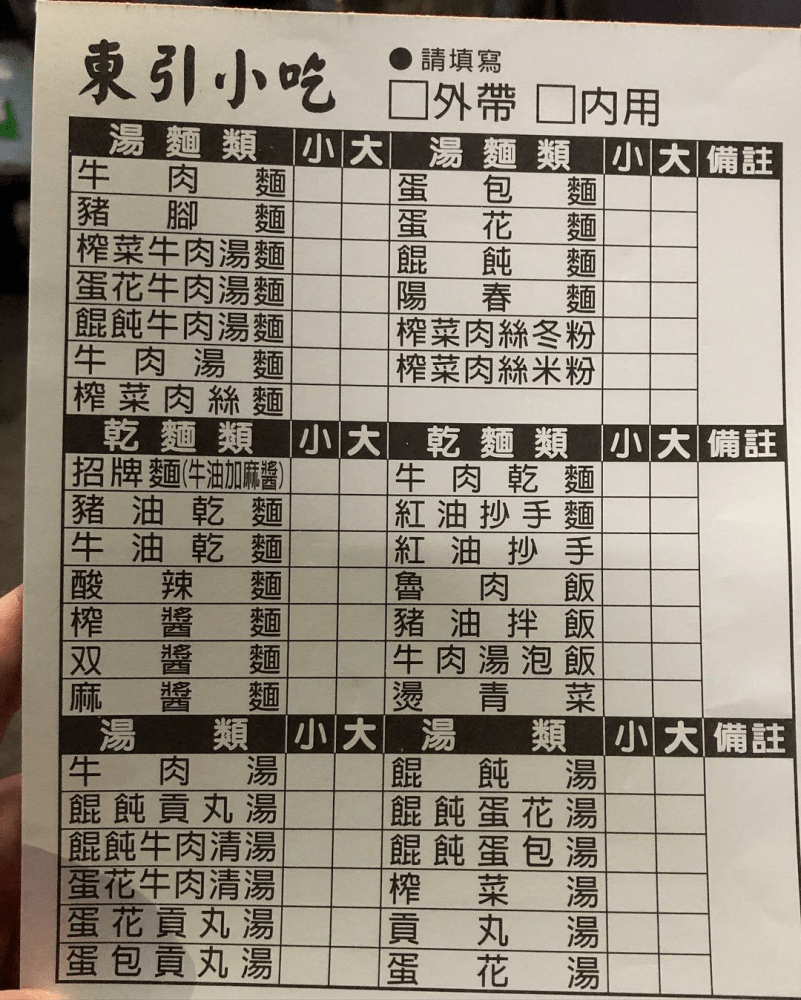 東引小吃
●請填寫
□外帶 □內用
湯麵類 小 大 湯麵類 小 大 備註
牛肉麵 蛋包麵
豬腳麵 蛋花麵
榨菜牛肉湯麵 餛飩麵
蛋花牛肉湯麵 陽春麵
餛飩牛肉湯麵 榨菜肉絲冬粉
牛肉湯麵 榨菜肉絲米粉
榨菜肉絲麵
乾麵類 小 大 乾麵類 小 大 備註
招牌麵(牛油加麻醬) 牛肉乾麵
豬油乾麵 紅油抄手麵
牛油乾麵 紅油抄手
酸辣麵 魯肉飯
榨醬麵 豬油拌飯
双醬麵 牛肉湯泡飯
麻醬麵 燙青菜
湯類 小 大 湯類 小 大 備註
牛肉湯 餛飩湯
餛飩貢丸湯 餛飩蛋花湯
餛飩牛肉清湯 餛飩蛋包湯
蛋花牛肉清湯 榨菜湯
蛋花貢丸湯 貢丸湯
蛋包貢丸湯 蛋花湯